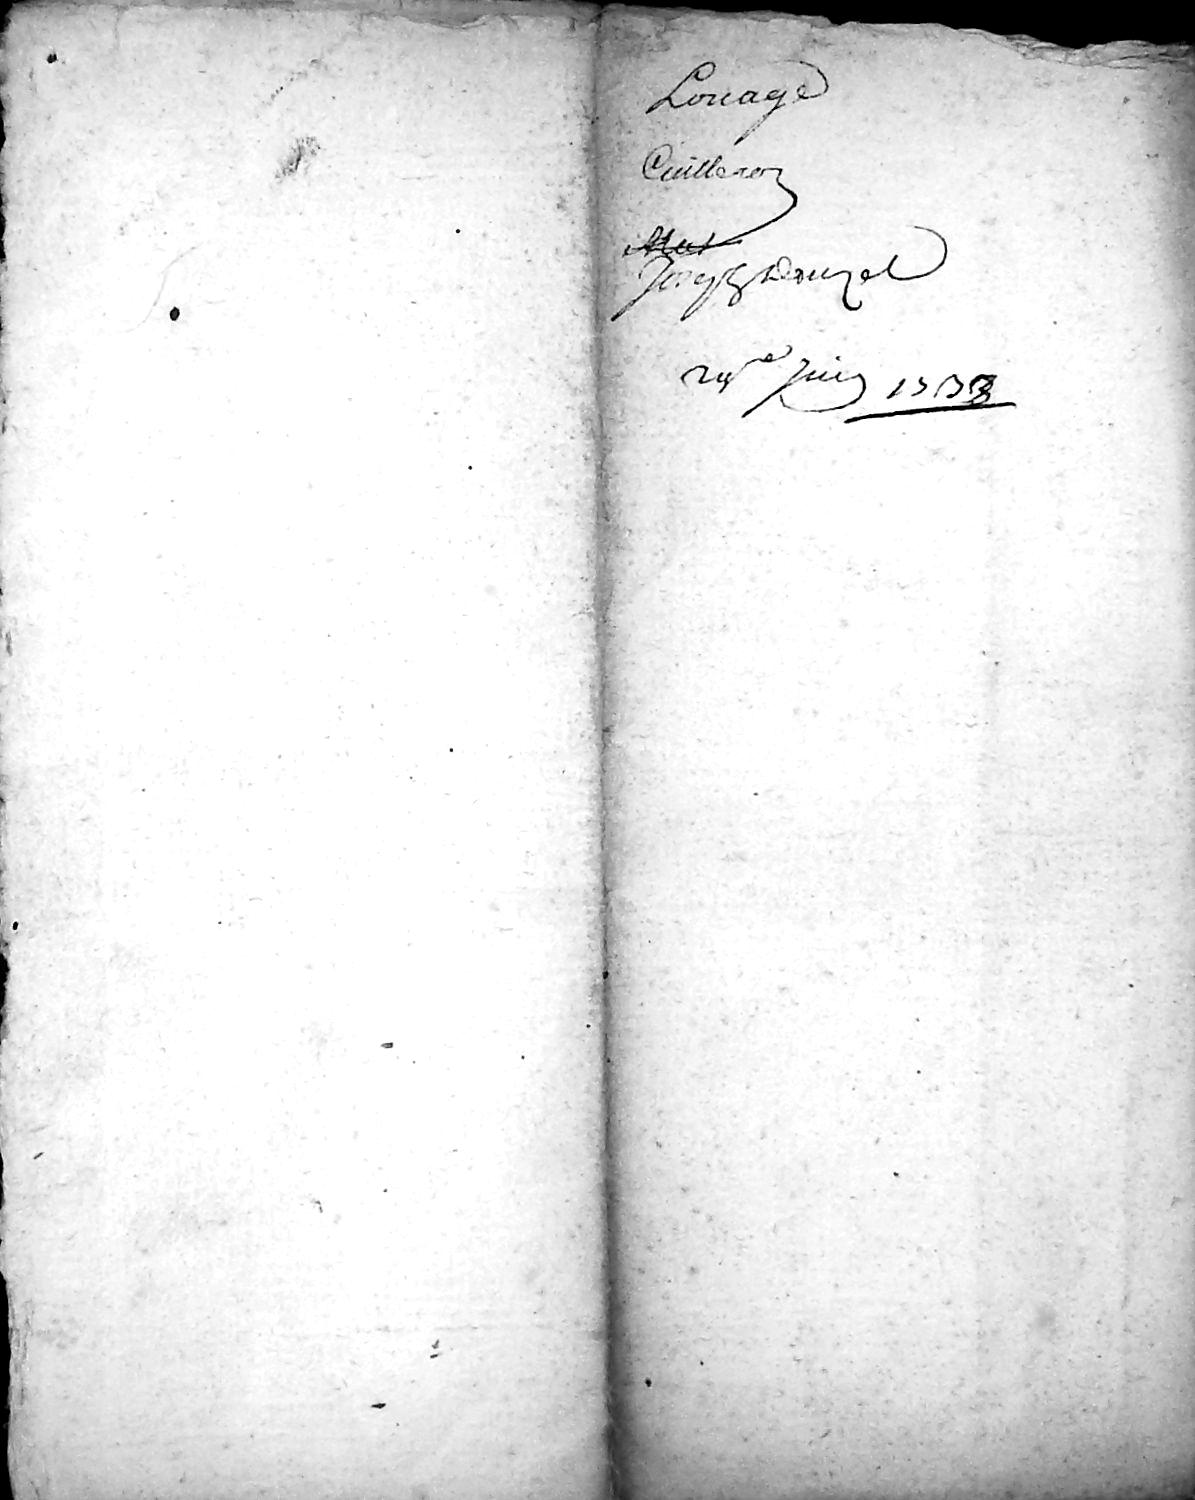 Louage
Cuilleron
Joseph Donzel
24e Juin 1778